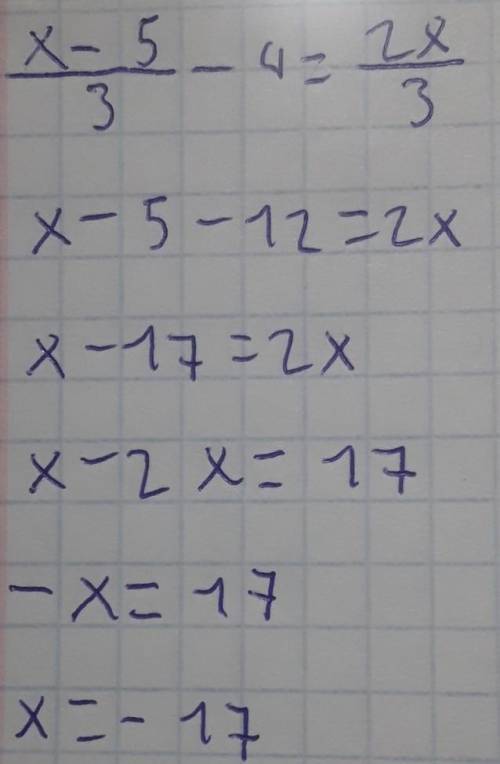 x - 5 / 3 - 4 = 2x / 3
x - 5 - 12 = 2x
x - 17 = 2x
x - 2x = 17
- x = 17
x = - 17